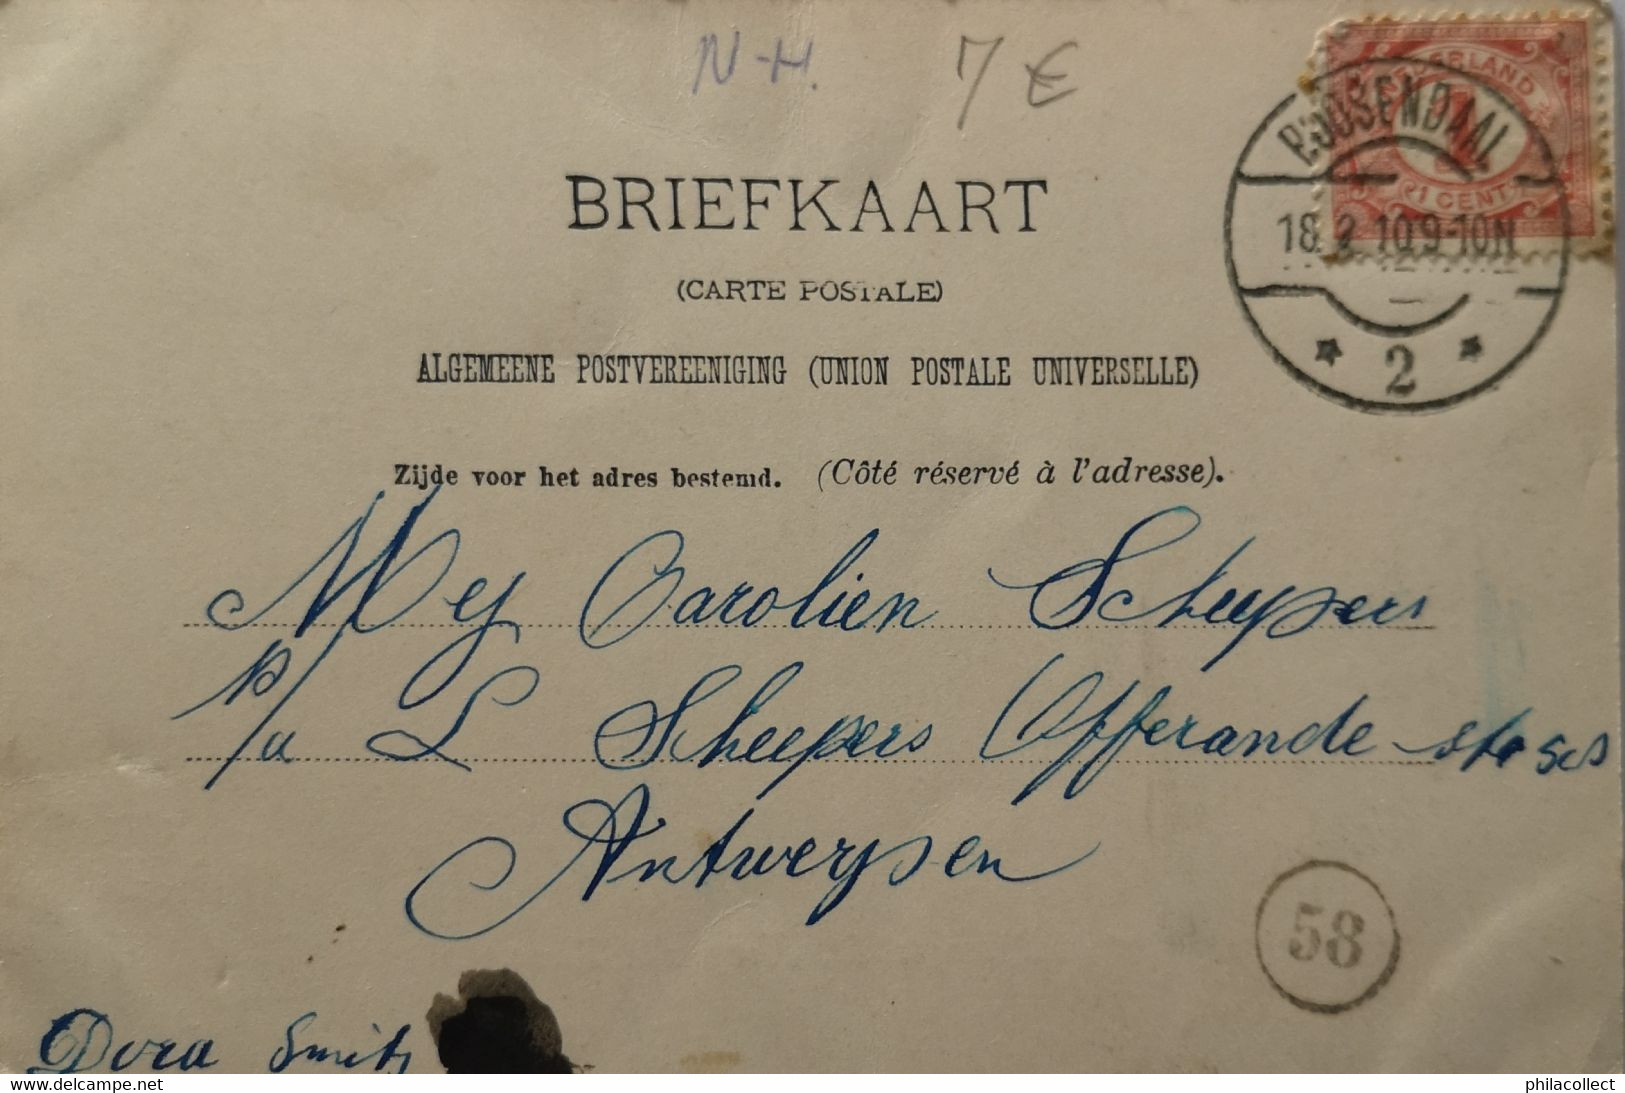 N-H. 7 €
NEDERLAND
1
1 CENT
ROOSENDAAL
18.2.10.9-10N
2
BRIEFKAART
(CARTE POSTALE)
ALGEMEENE POSTVEREENIGING (UNION POSTALE UNIVERSELLE)
Zijde voor het adres bestemd. (Côté réservé à l'adresse).
Mej Carolien Scheepers
p/a L Scheepers Offerande
Antwerpen
58
Dora Smits
delcampe.net
philacollect